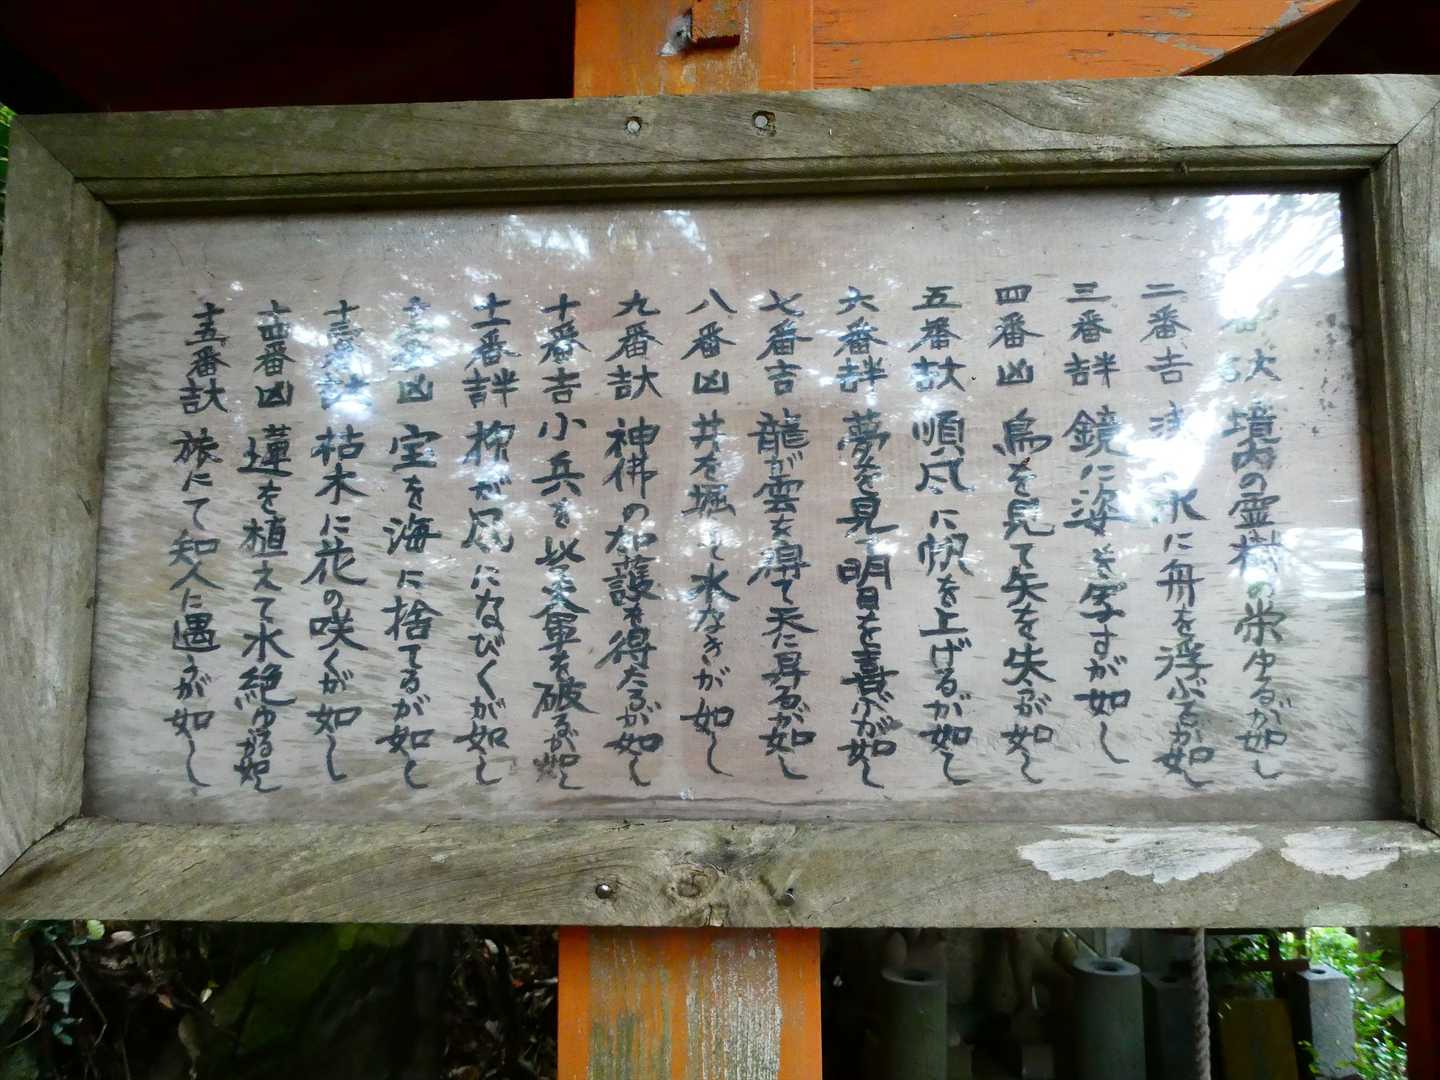 番大吉 境内の霊樹の栄ゆるが如し
二番吉 水に舟を浮ぶるが如し
三番半吉 鏡に姿を写すが如し
四番凶 鳥を見て矢を失うが如し
五番大吉 順風に帆を上げるが如し
六番半吉 夢を見て明日を喜ぶが如し
七番吉 龍が雲を得て天に昇るが如し
八番凶 井を堀って水なきが如し
九番大吉 神佛の加護を得たるが如し
十番吉 小兵を以て大軍を破るが如し
十一番半吉 柳が風になびくが如し
十二番凶 宝を海に捨てるが如し
十三番大吉 枯木に花の咲くが如し
十四番凶 蓮を植えて水絶ゆるが如し
十五番大吉 旅にて知人に遇うが如し